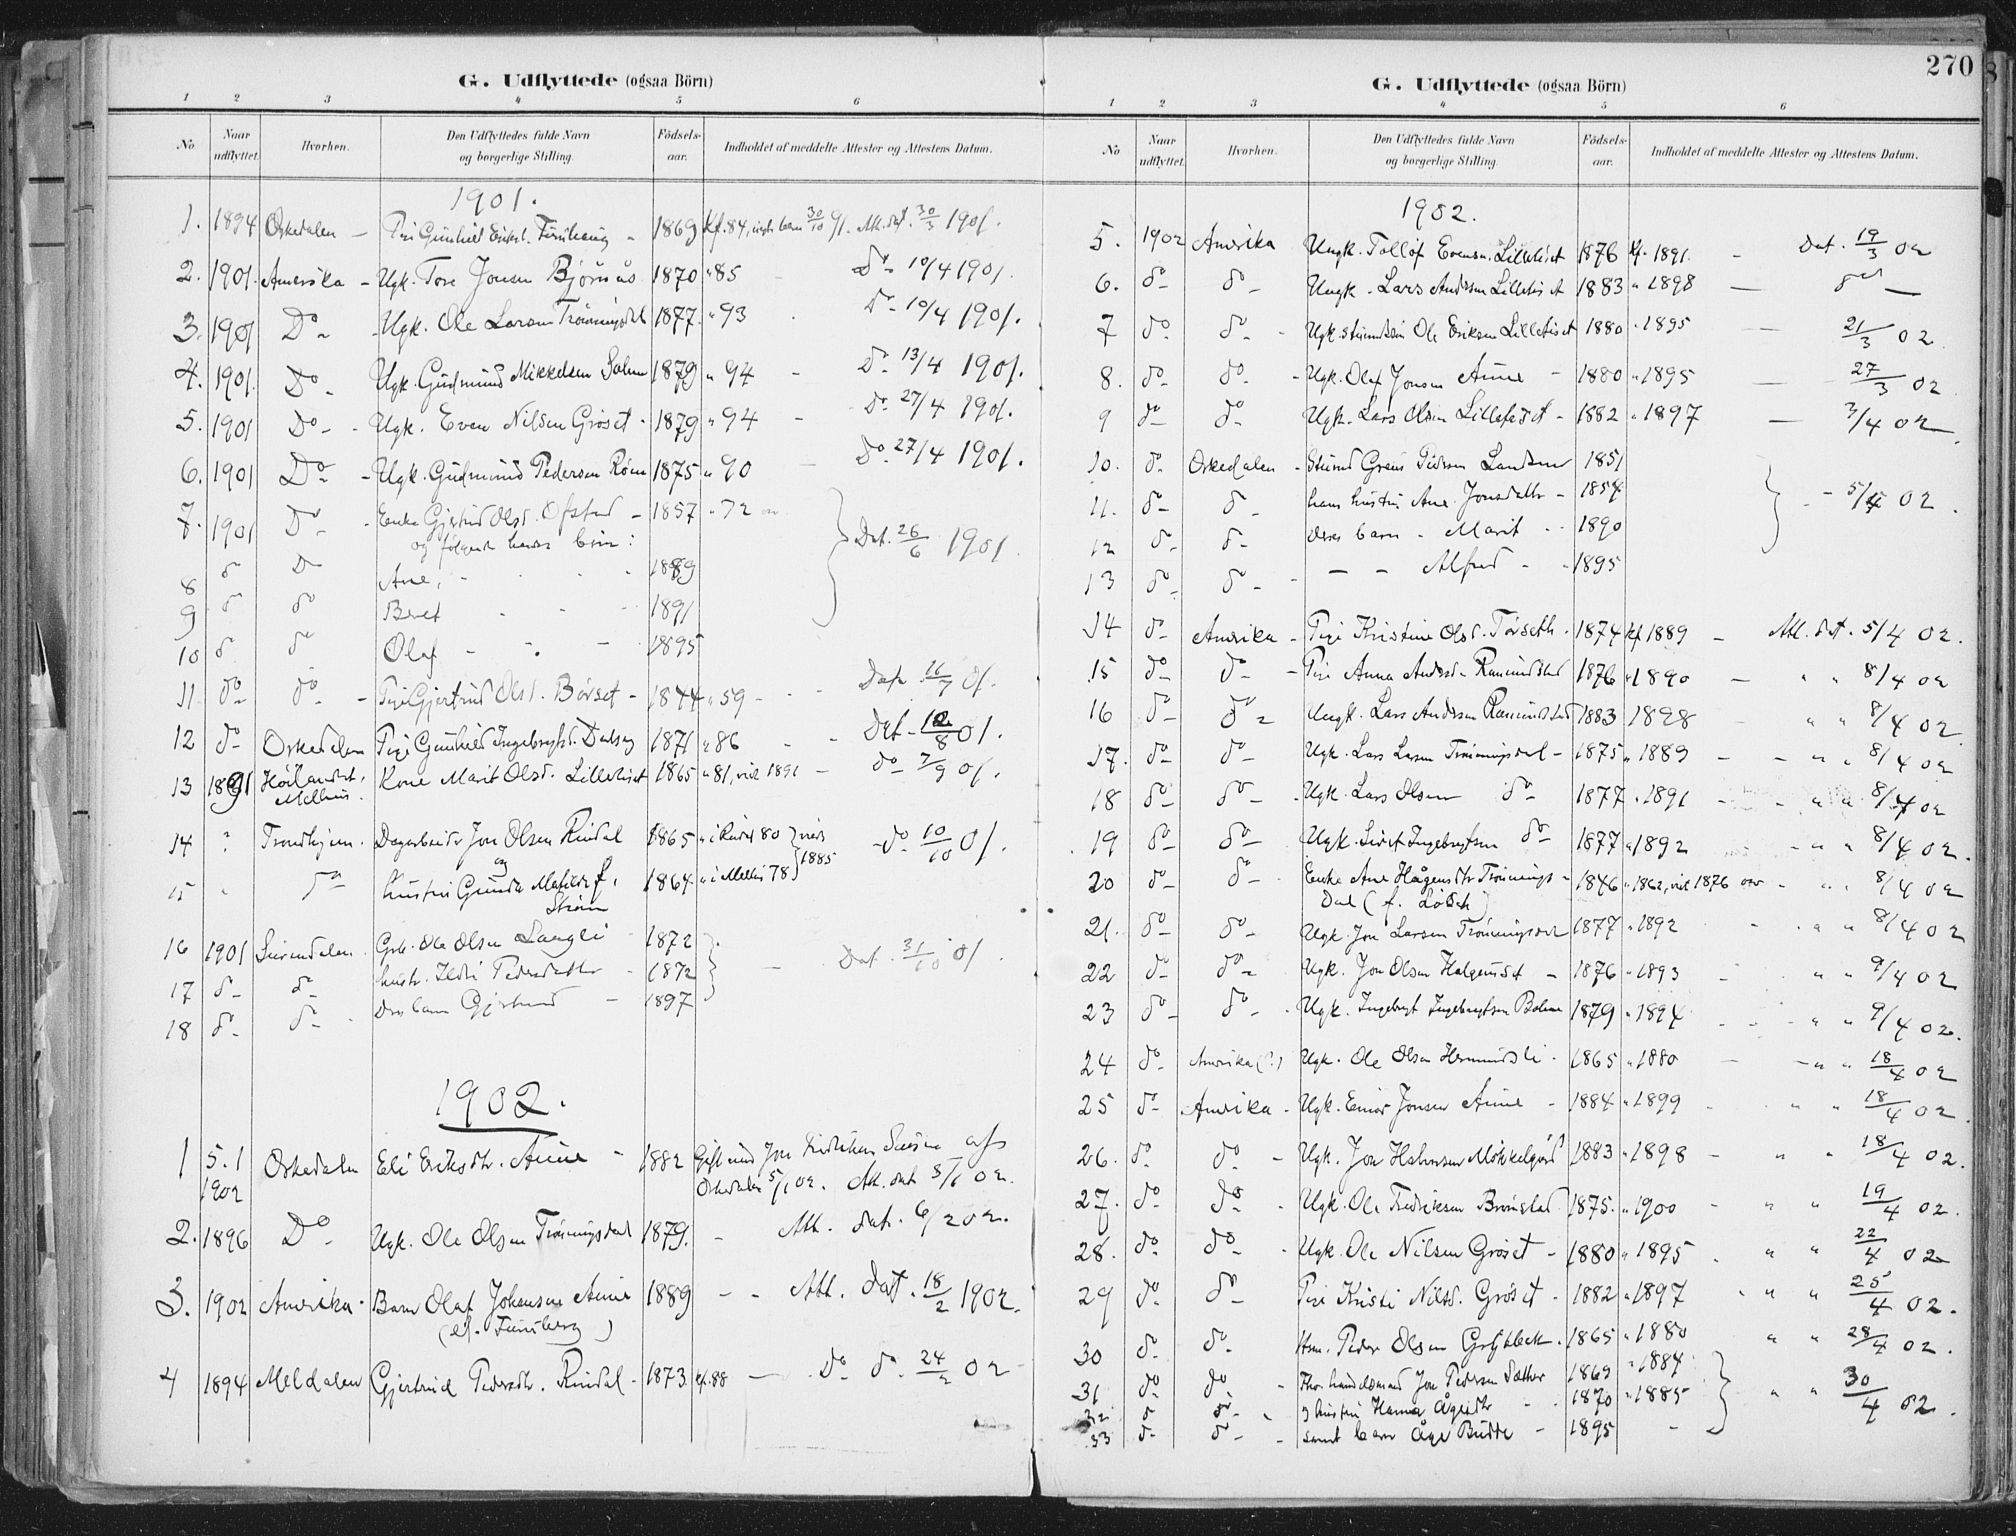 270
G. Udflyttede (ogsaa Börn)
1 2 3 4 5 6
No Naar udflyttet. Hvorhen. Den Udflyttedes fulde Navn og borgerlige Stilling. Födsels-aar. Indholdet af meddelte Attester og Attestens Datum.
1901.
1. 1894 Orkedalen - Pige Gunhild 1869 Kf. 84, 30/10 91. Att. dat. 30/3 1901.
2. 1901. Amerika - Ugk. Tore Jonsen Bjørnås 1870 " 85 - do 10/4 1901.
3. 1901 Do - Ugk. Ole Larsen Trønningsdal 1877. " 93 Do 10/4 1901.
4. 1901. Do - Ugk. Gudmund Mikkelsen Bolme 1879 " 94 - Do 13/4 1901.
5. 1901 Do - Ugk. Even Nilsen Grøset - 1879 " 94 - Do 27/4 1901.
6. 1901 Do - Ugk. Gudmund Pedersen Røen 1875 " 90 - Do 27/4 1901.
7. 1901 Do - Enke Gjertrud Olsd. Ofstad - 1857 " 72
og følgende hendes børn: Dat. 26/6 1901
8 do Do Ane, - 1889
9 do do Beret - 1891
10 do do Olaf - 1895
11 do do - Pige Gjertrud Olsd. Børset - 1844 " 59 - Dat. 16/7 01.
12 do Orkedalen Pige Gunhild Ingebrigtsd. 1871 " 86 - Dat. 12/8 01.
13 1891 Høilandet, Kone Marit Olsd. Lillehiset 1865 " 81, viet 1891 - do 7/9 01.
Melhus.
14 ? Trondhjem. Dagarbeider Jon Olsen Rindal 1865 " i Rindal 80 } viet 1885 - do 10/10 01.
og
15 " do hustru Gunda Matilde f. 1864 " i Melhus 78
Strøm
16 1901 Surendalen. Gbr. Ole Olsen Langli 1872
17 do do hustr. Ildri Pedersdatter - 1872 - Dat. 31/10 01
18 do do - Deres barn Gjertrud - 1897
1902.
1 5.1 1902 Orkedalen Eli Eriksdtr. Aune - 1882 Gift med Jon af
Orkedalen 5/1 02. Att. dat. 5/1 02.
2. 1896 Do Ugk. Ole Olsen Trønningsdal 1879. - Att. dat. 6/2 02.
3. 1902 Amerika - Barn Olaf Johansen Aune 1889 - - Att. dat. 18/2 1902.
4 1894 Meldalen Gjertrud Pedersdtr. Rindal - 1873. Kf. 88 - Do do 24/2 02
G. Udflyttede (ogsaa Börn)
1 2 3 4 5 6
No Naar udflyttet. Hvorhen. Den Udflyttedes fulde Navn og borgerlige Stilling. Födsels-aar. Indholdet af meddelte Attester og Attestens Datum.
1902.
5. 1902 Amerika Ungk. Tollof Evensn. Lillehiset 1876 Kf. 1891. - Dat. 19/3 02
6. do do - Ungk. Lars Andersen Lillehiset 1883 " 1898 - do -
7 do do - Ugk. Ole Eriksen Lillehiset 1880 " 1895 - 21/3 02.
8. do do - Ugk. Olaf Jonsen Aune - 1880 " 1895 - 27/3 02
9 do do - Ugk. Lars Olsen Lillehiset - 1882 " 1897 - 3/4 02
10. do Orkedalen - Pedersen 1851
11. do do - hans hustru Ane Jonsdatter - 1854 - 5/4 02.
12 do do deres barn - Marit - 1890
13 do do - - - Alfred - 1895
14 do Amerika - Pige Kristine Olsd. Tørseth. 1874 Kf 1889 - Att. dat. 5/4 02.
15 do do - Pige Anna Andersd. 1876 " 1890 - " " 8/4 02
16 do do - Ungk. Lars Andersen 1883 1898 - " " 8/4 02
17. do do - Ugk. Lars Larsen Trønningsdal - 1875 " 1889 - " " 8/4 02
18 do do - Ugk. Lars Olsen do 1877 " 1891 - " " 8/4 02
19 do do - Ugk. Sivert Ingebrigtsen do 1877 " 1892 - " " 8/4 02.
20 do do - Enke Ane Hågensdtr Trønnings- 1846 " 1862, viet 1876 - " " 8/4 02
dal (f. )
21. do do - Ugk. Jon Larsen Trønningsdal 1877 " 1892 - " " 8/4 02
22 do do - Ugk. Jon Olsen - 1876 " 1893 - " " 9/4 02
23 do do - Ugk. Ingebrigt Ingebrigtsen Bolme 1879 " 1894 - " " 9/4 02.
24 do Amerika (?) Ugk. Ole Olsen Hermundsli - 1865 " 1880 - " " 18/4 02
25 do Amerika - Ugk. Einar Jonsen Aune - 1884 " 1899 - " " 18/4 02
26. do do - Ugk. Jon 1883 " 1898 - " " 18/4 02.
27. do do - Ugk. Ole Fredriksen Brønstad 1875. " 1900 - " " 19/4 02.
28. do do - Ugk. Ole Nilsen Grøset - 1880 " 1895 - " " 22/4 02
29 do do - Pige Kristi Nilsd. Grøset - 1882 " 1897 - " " 25/4 02.
30 do do - Peder Olsen 1865 " 1880 " " 28/4 02.
31 do do - Jon Pedersen Sæther 1869 " 1884
32 do do - & hustru Hanna Ågesdtr - 1870 " 1885 " " 30/4 02.
33 do do - samt barn Åge Budde - 1895 -